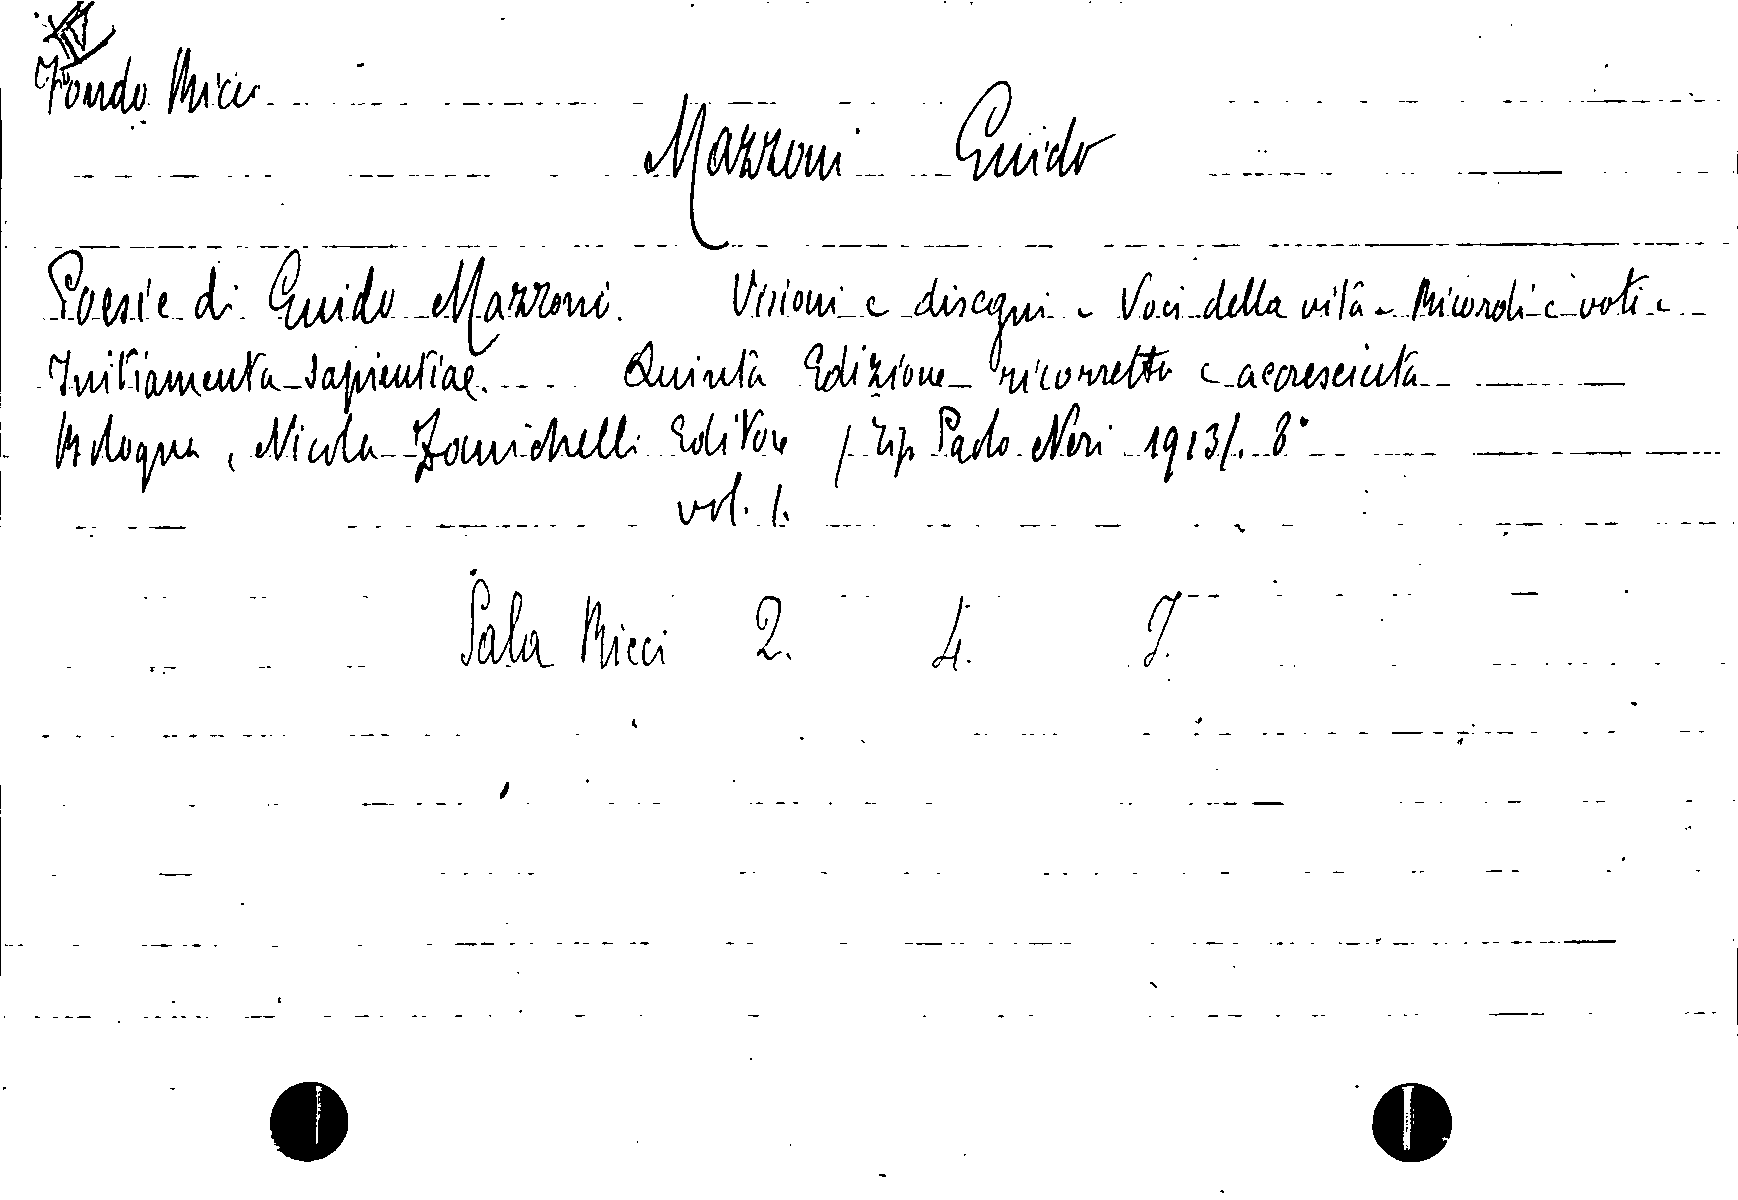 IV
Fondo Ricci
Mazzoni Guido
Poesie di Guido Mazzoni. Visioni e disegni - Voci della vita - Ricordi e voti -
Initiamenta sapientiae. Quinta Edizione ricorretta e accresciuta
Bologna, Nicola Zanichelli Editore / Tip. Paolo Neri 1913/. 8°
vol. 1.
Sala Ricci 2. 4. 7.